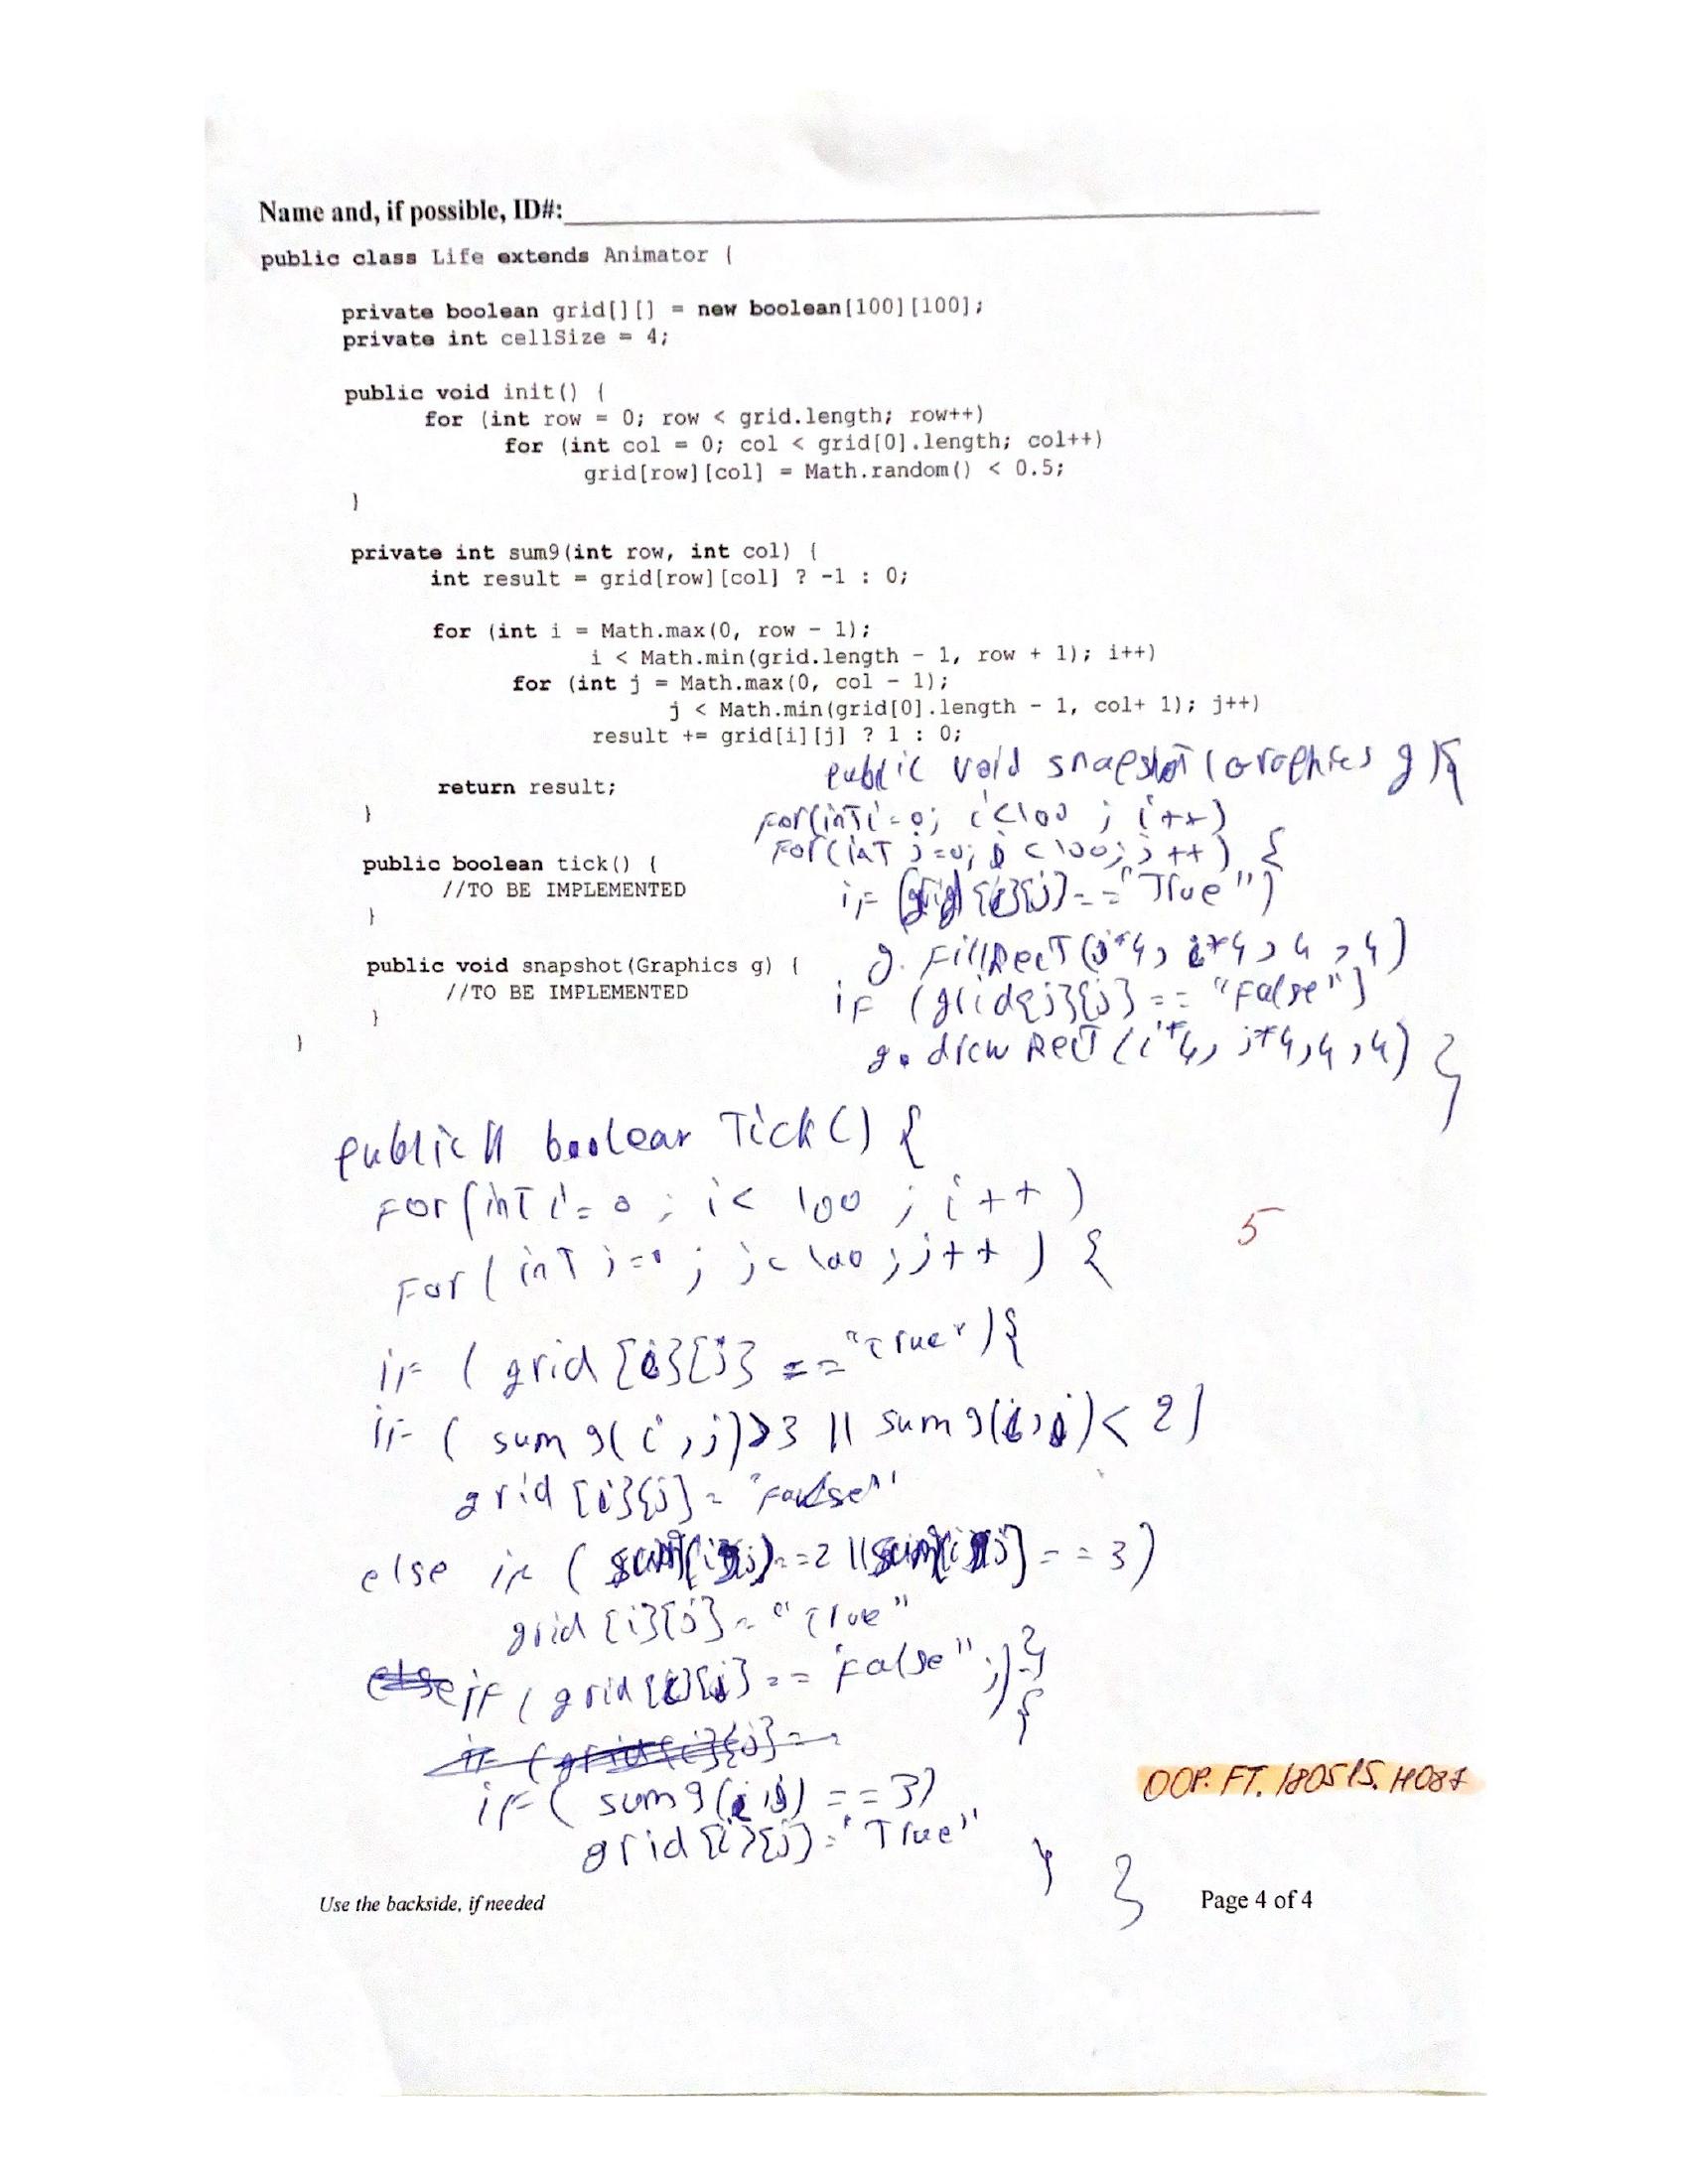 Name and, if possible, ID#:
public class Life extends Animator {
private boolean grid[][] = new boolean[100][100];
private int cellSize = 4;
public void init() {
for (int row = 0; row < grid.length; row++)
for (int col = 0; col < grid[0].length; col++)
grid[row][col] = Math.random() < 0.5;
}
private int sum9(int row, int col) {
int result = grid[row][col] ? -1 : 0;
for (int i = Math.max(0, row - 1);
i < Math.min(grid.length - 1, row + 1); i++)
for (int j = Math.max(0, col - 1);
j < Math.min(grid[0].length - 1, col+ 1); j++)
result += grid[i][j] ? 1 : 0;
return result;
}
public boolean tick() {
//TO BE IMPLEMENTED
}
public void snapshot(Graphics g) {
//TO BE IMPLEMENTED
}
}
public void snapshot(Graphics g){
for(int i=0; i<100 ; i++)
for(int j=0; j<100; j++) {
if (grid[i][j]=="True")
g. fillRect(j*4, i*4, 4, 4)
if (grid[i][j] == "False")
g. drew Rect (i*4, j*4,4,4) }
public boolean Tick() {
for(int i=0 ; i< 100 ; i++)
for( int j=0 ; j<100 ; j++) {
if ( grid [i][j] =="True"){
if ( sum9(i,j)>3 || sum9(i,j)< 2)
grid [i][j] = "False"
else if ( == 2 || == 3)
grid [i][j] = "True"
if ( grid[i][j] == "False" ;) }
{
if ( sum9(i,j) ==3)
grid [i][j]="True"
} }
5
OOP. FT. 180515. H087
Use the backside, if needed
Page 4 of 4